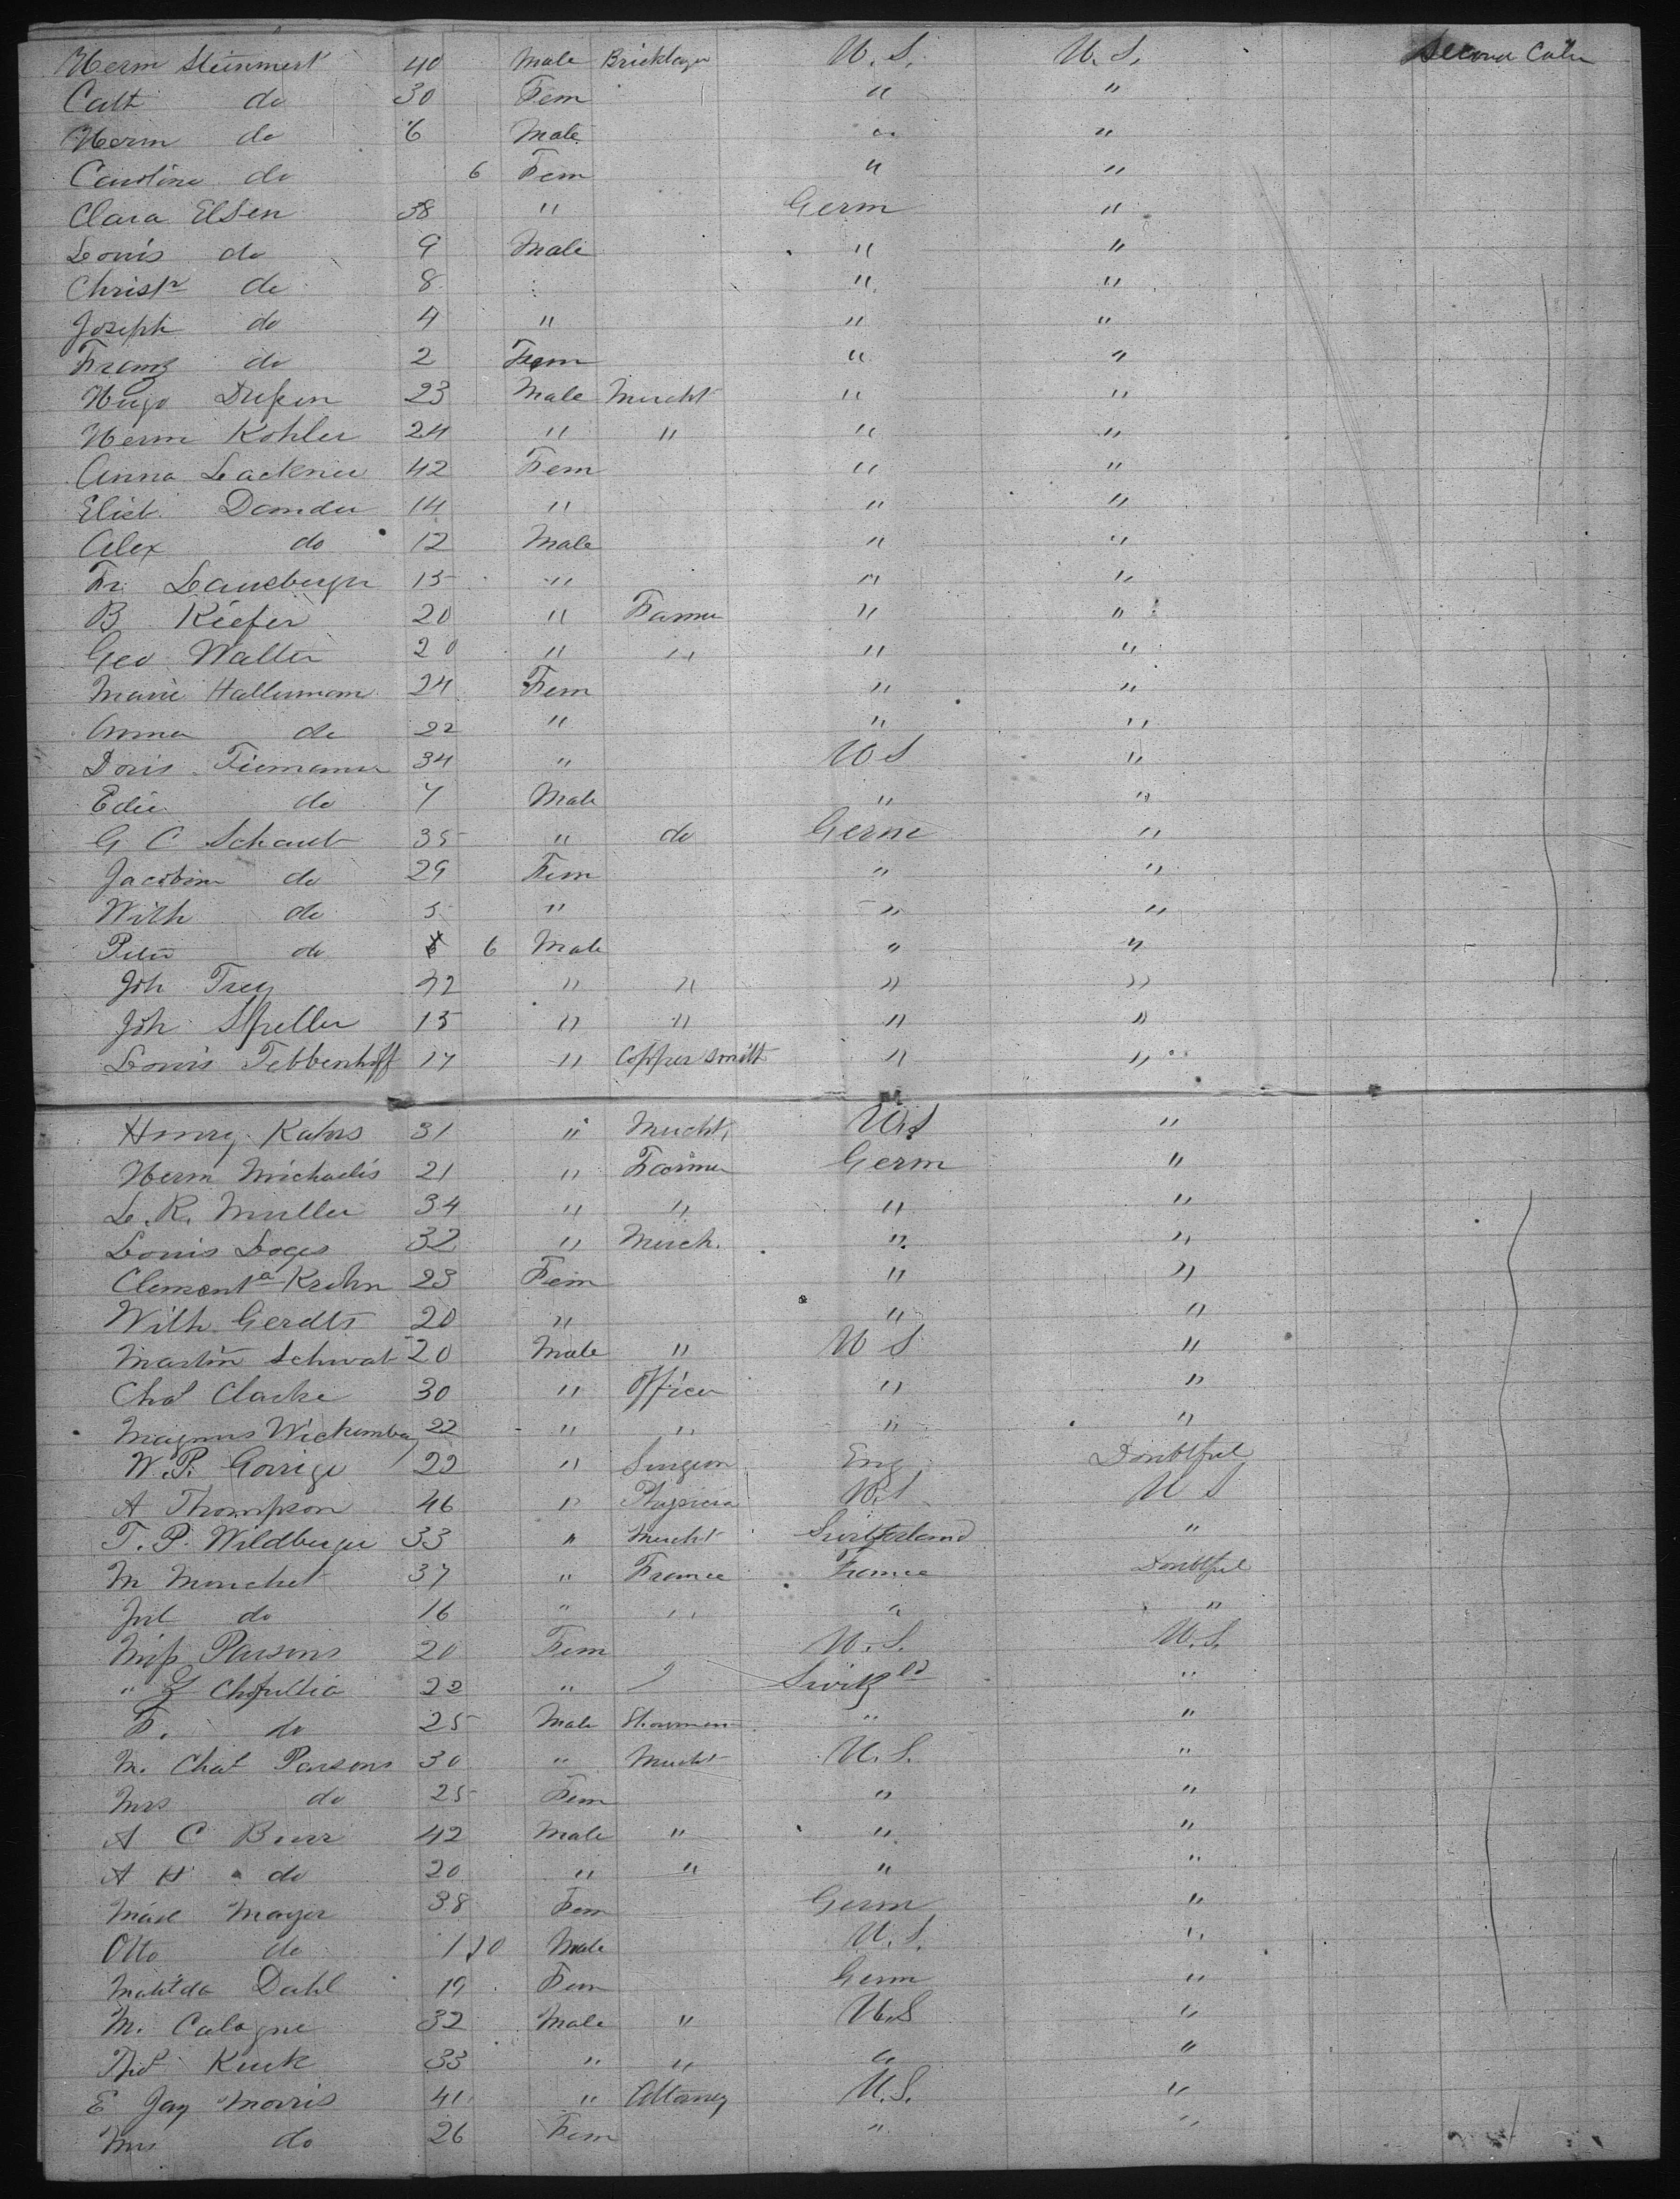 Herm Steinmert 40 Male Bricklayer U. S. U. S. Second Cabin
Cath do 30 Fem " "
Herm do 6 Male " "
Caroline do 6 Fem " "
Clara Elsen 38 " Germ "
Louis do 9 Male " "
Christn do 8 : " "
Joseph do 4 " " "
Franz do 2 Fem " "
Hugo 23 Male Mercht " "
Herm Kohler 24 " " " "
Anna Lackner 42 Fem " "
Elict Domder 14 " " "
Alex do 12 Male " "
Fr. Lansberger 15 " " "
B Kiefer 20 " Farmer " "
Geo Walter 20 " " " "
Marie Hallermann 24 Fem " "
Anna do 22 " " "
Doris Tiemann 34 " U S "
Edu do 7 Male " "
G C Schaub 35 " do Germ "
Jacobine do 29 Fem " "
Wilh do 5 " " "
Peter do 6 Male " "
Joh Frey 22 " " " "
Joh Speller 15 " " " "
Louis Tebbenhoff 17 " Copper Smith " "
Henry Kahrs 31 " Mercht, U.S "
Herm Michaelis 21 " Farmer Germ "
L. R. Muller 34 " " " "
Louis Loges 32 " Merch. " "
Clementa Krehn 23 Fem " "
Wilh Gerdts 20 " " "
Martin Schwab 20 Male " U S "
Chas Clarke 30 " Officer " "
Magnus 22 " " " "
W. P. Gorrige 22 " Surgeon Eng Doubtful
A Thompson 46 " Physicia U.S U S
T. P. Wildberger 33 " Mercht Switzerland "
M Monchet 37 " France France Doubtful
Jul do 16 " " " "
Miss Parsons 20 Fem U. S. U. S.
" Z 22 " Switzld "
F. do 25 Male " "
M. Chas Parsons 30 " Mercht U. S. "
Mrs do 25 Fem " "
A C Burr 42 Male " " "
A H do 20 " " " "
Mare Mayer 38 Fem Germ "
Otto do 1 10 Male U. S. "
Matilda Dahl 19 Fem Germ "
M. Calogne 32 Male " U.S "
Thos Kuck 33 " " " "
E Jay Morris 41 " Attorney U. S. "
Mrs do 26 Fem " "